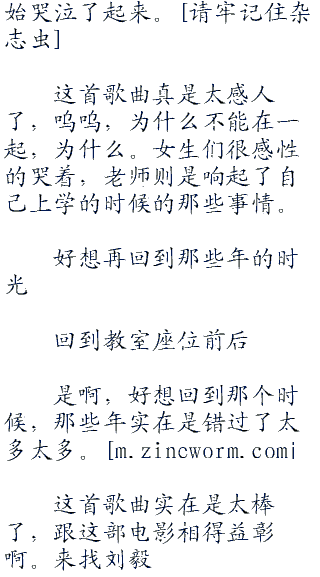 始哭泣了起来。[请牢记住杂
志虫]
这首歌曲真是太感人
了，呜呜，为什么不能在一
起，为什么。女生们很感性
的哭着，老师则是响起了自
己上学的时候的那些事情。
好想再回到那些年的时
光
回到教室座位前后
是啊，好想回到那个时
候，那些年实在是错过了太
多太多。[m.zincworm.com|
这首歌曲实在是太棒
了，跟这部电影相得益彰
啊。来找刘毅